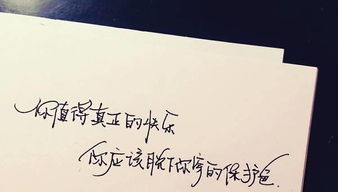 你值得真正的快乐
你应该脱下你穿的保护色